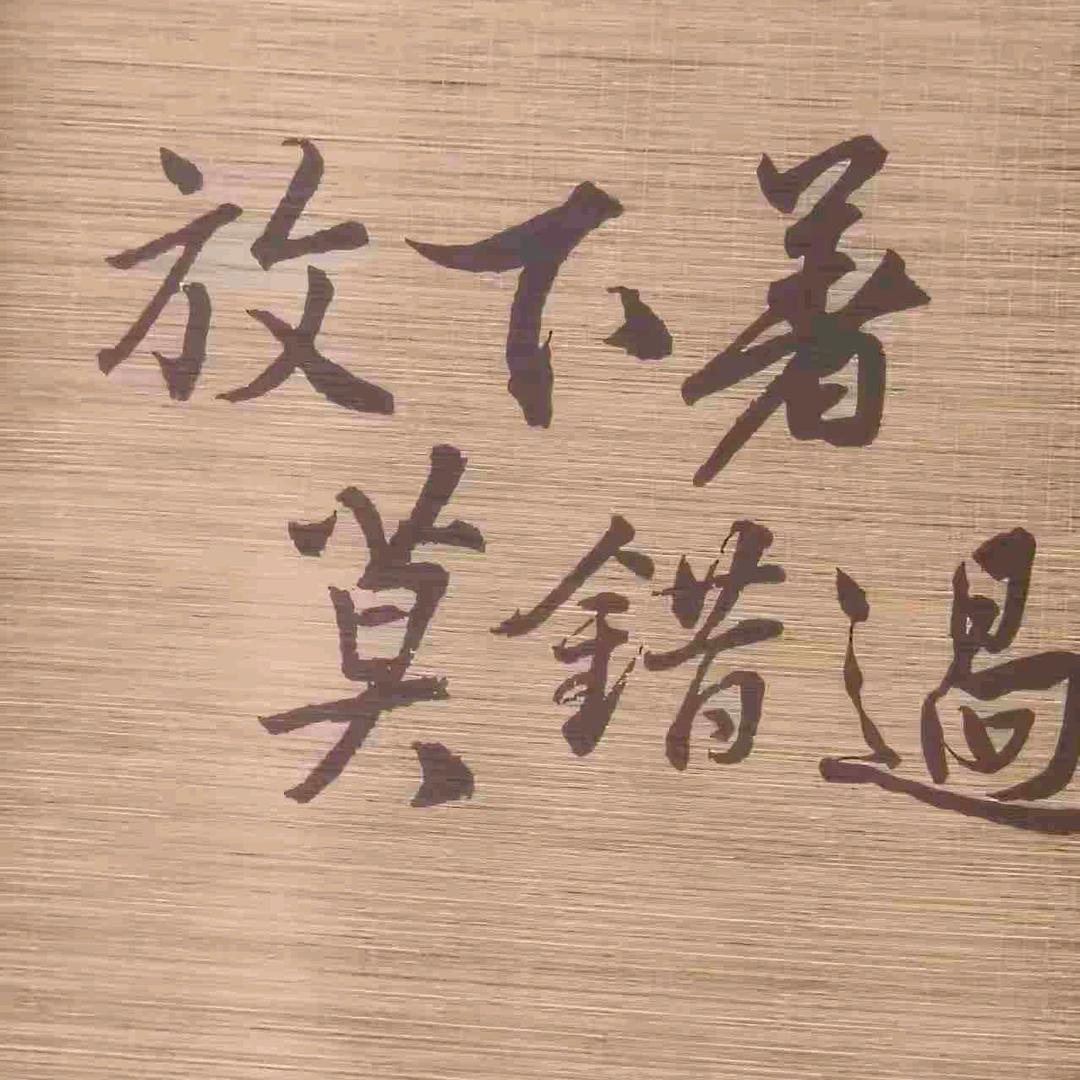 放下著
莫錯過